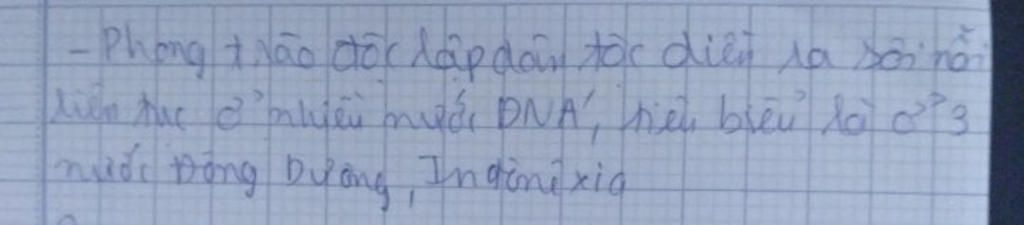 - Phong trào độc lập dân tộc diễn ra sôi nổi
liên tục ở nhiều nước ĐNÁ, tiêu biểu là ở 3
nước Đông Dương, Inđônêxia